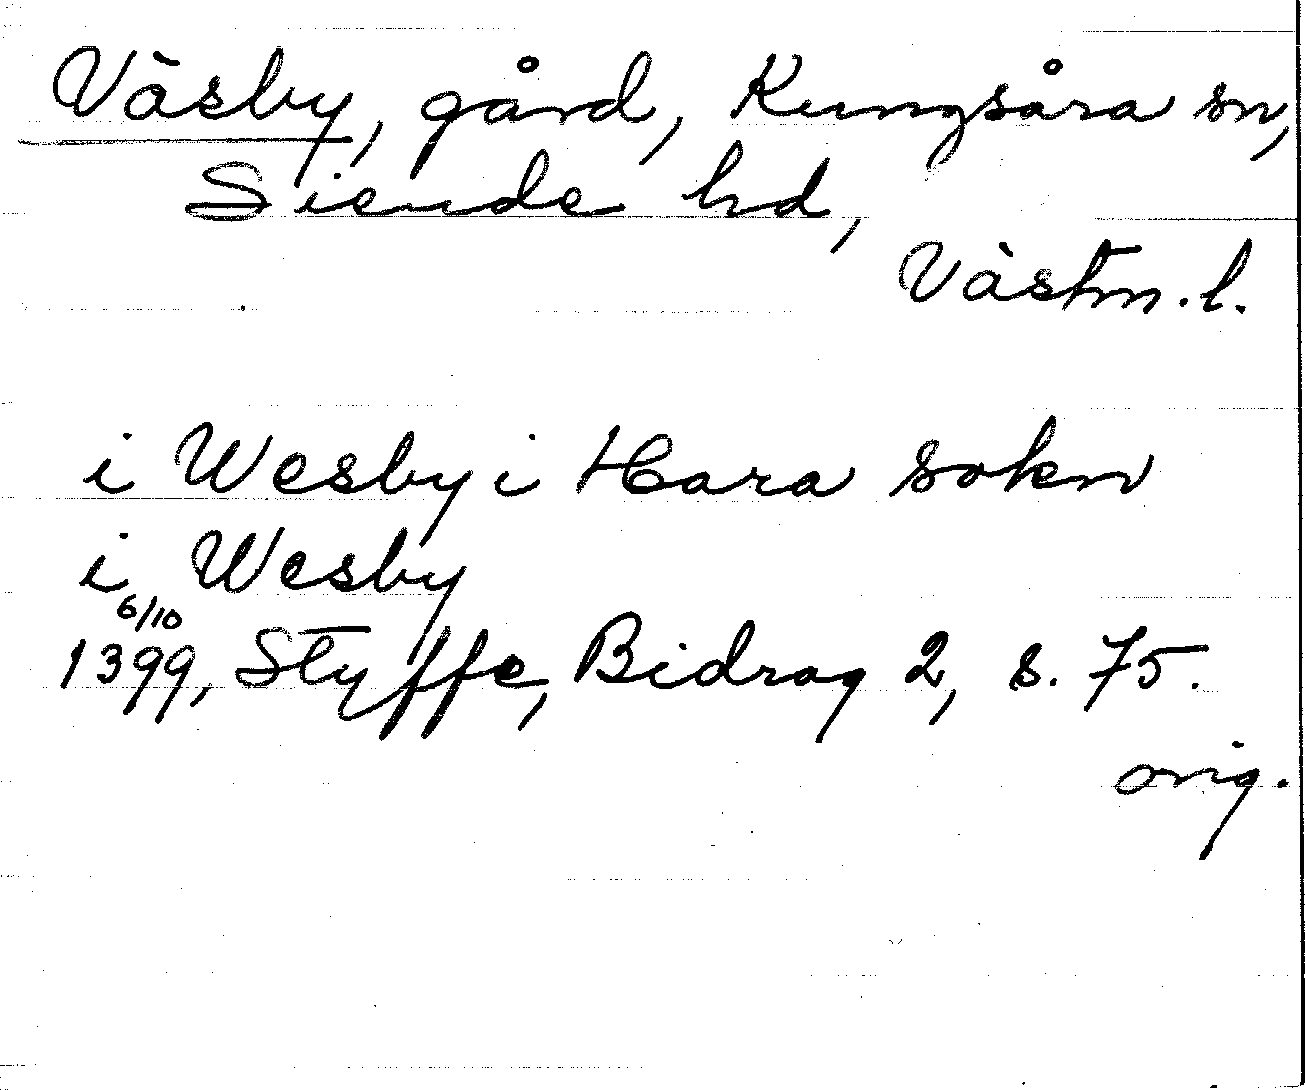 Väsby, gård, Kungsåra sn,
Siende hd,
Västm. l.
i Wesby i Hara sokn
i Wesby
6/10
1399, Styffe, Bidrag 2, s. 75.
orig.